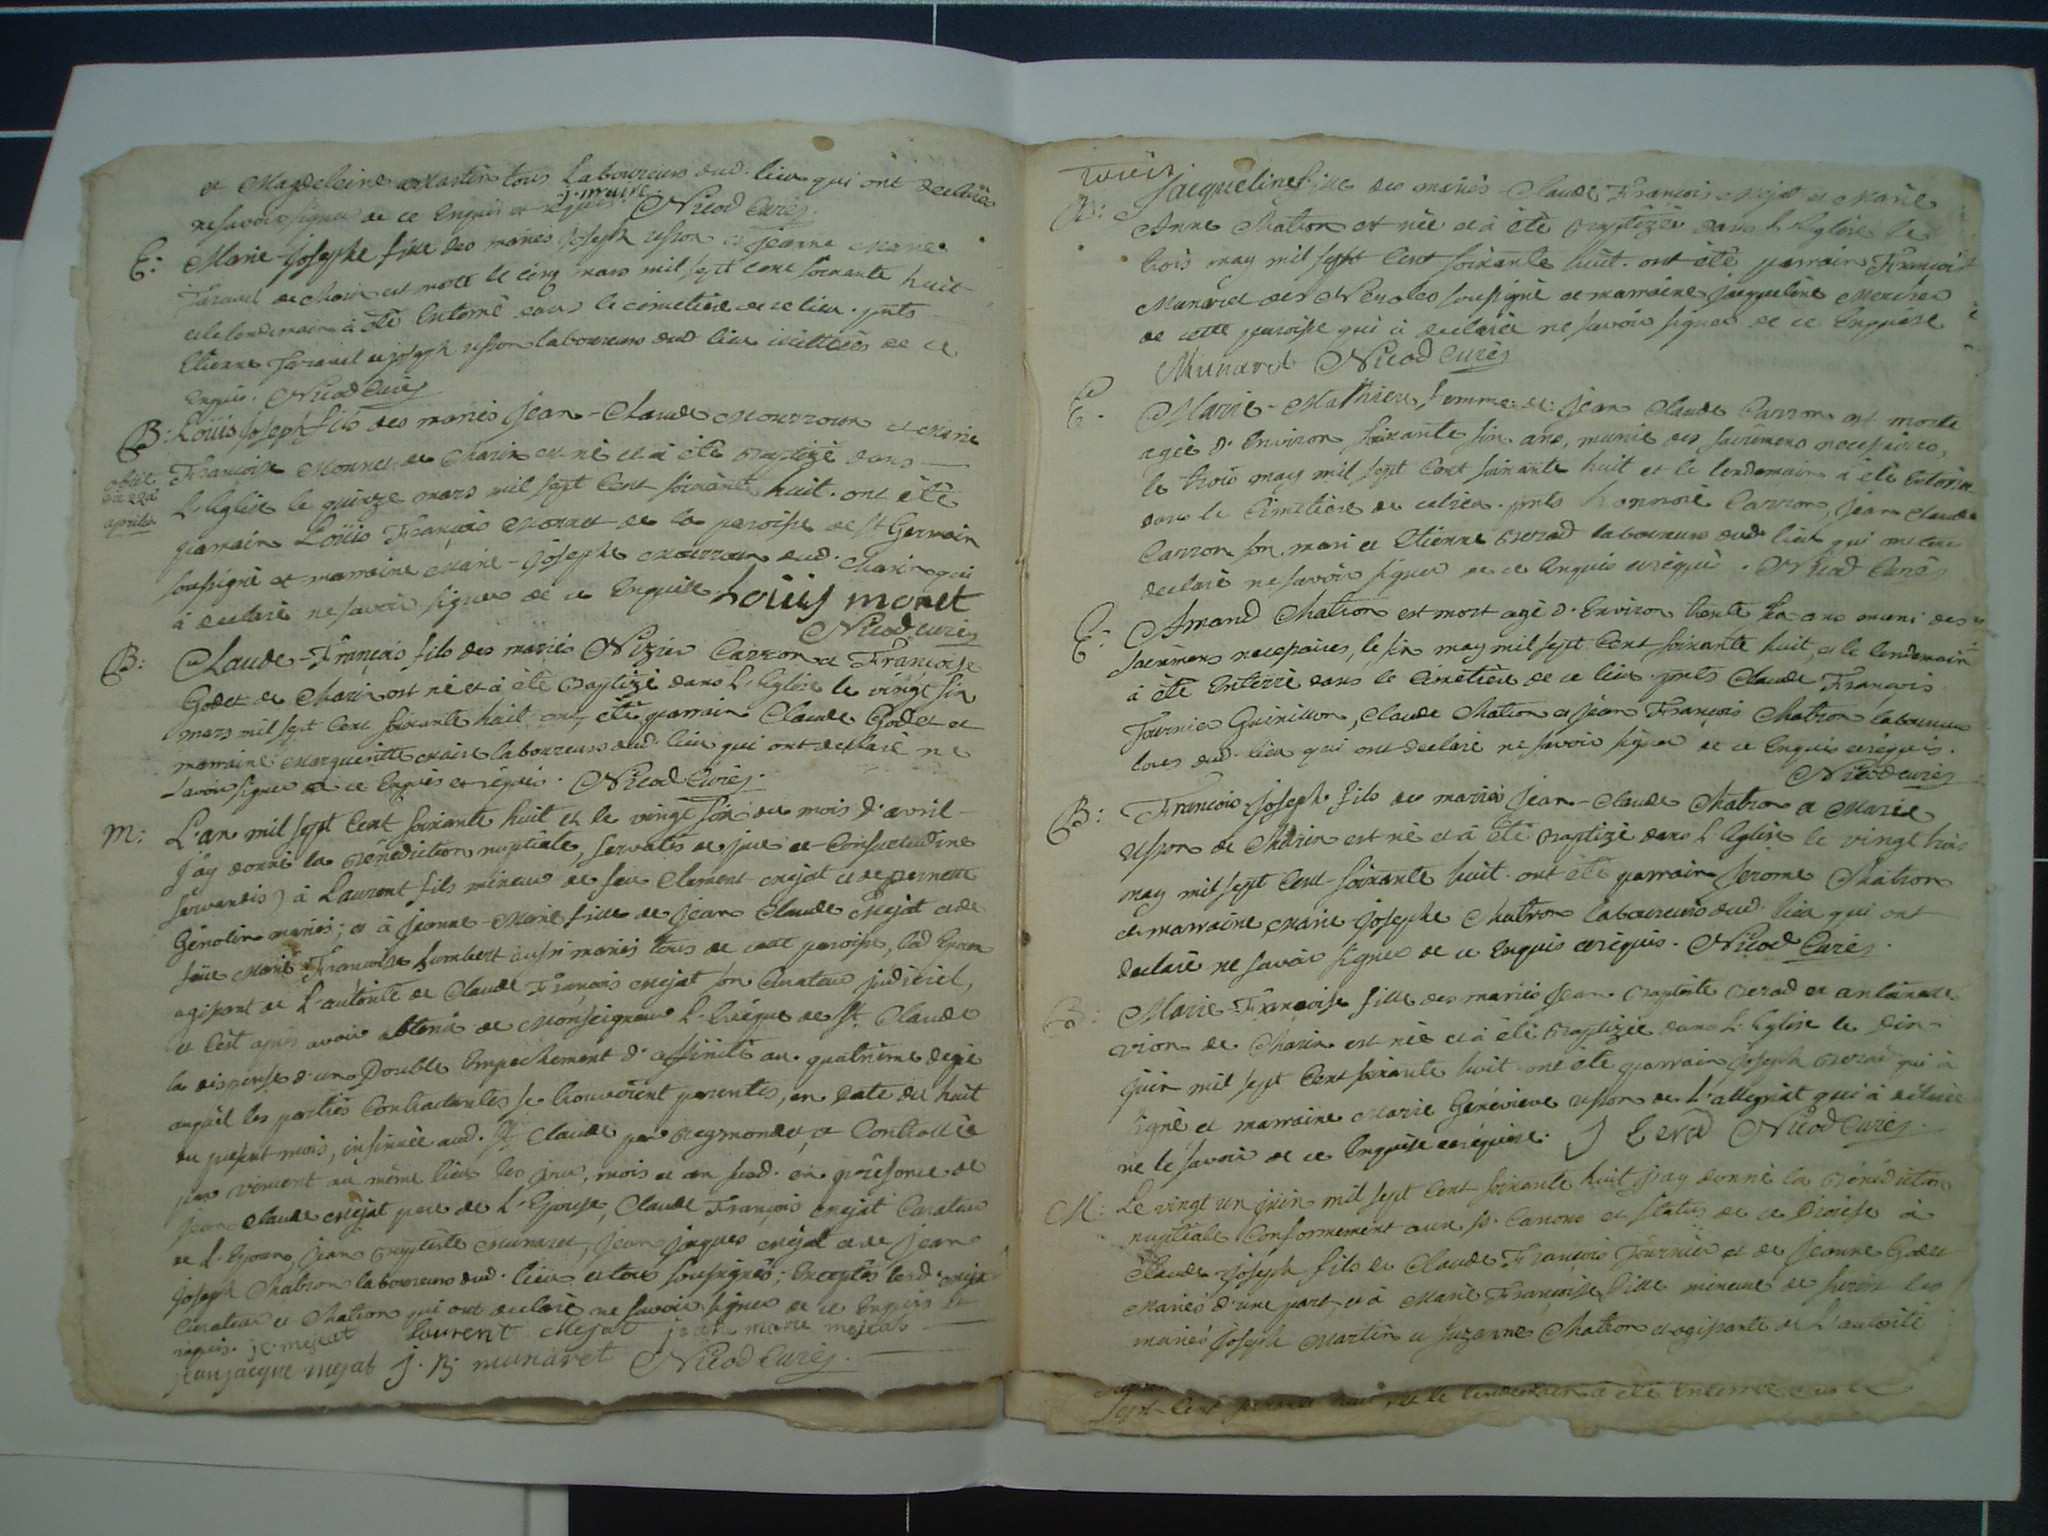 et Magdeleine Martin tous Laboureurs dud. lieu qui ont declarée
ne savoir signer de ce Enquis et requis. j. maire Nicod Curé
E: Marie-Josephe fille des mariés Joseph usson et Jeanne Marie
de Charix est morte le cinq mars mil sept cent soixante huit
et le lendemain à été Enterré dans le cimetiere de ce lieu. pnts
Etienne et joseph usson laboureurs dud lieu illitterés de ce
Enquis. Nicod Curé
B: Loüis joseph fils des mariés Jean-Claude et Marie
Françoise Monnet de Charix est né et à été Baptizé dans
obiit 22 aprilis
L'Eglise le quinze mars mil sept Cent soixante huit. ont été
parrain Loüis François Monnet de la paroisse de St Germain
soussigné et marraine Marie-Josephe dud. Charix qui
à declaré ne savoir signer de ce Enquise Loüis monet
Nicod curé
B: Claude-François fils des mariés Nizier Carron et Françoise
Godet de Charix est né et à été Baptizé dans L'Eglise le vingt six
mars mil sept Cent soixante huit ont été parrain Claude Godet et
marraine Marguerite Maire laboureurs dud. lieu qui ont declaré ne
savoir signer de ce Enquis et requis. Nicod Curé.
M: L'an mil sept Cent soixante huit et le vingt six du mois d'avril
j'ay donné la Bénédiction nuptiale, servatis de jure et Consuetudine
servandis) à Laurent fils mineur de feu Clement Mejat et de pernette
Génolin mariés; et à Jeanne-Marie fille de Jean Claude Mejat et de
feüe Marie Françoise humbert aussi mariés tous de cette paroisse, led Epoux
agissant de L'autorité de Claude François Mejat son Curateur judiciel,
et C'est après avoir obtenu de Monseigneur L'Evêque de St Claude
la dispense d'un Double Empechement d'affinité au quatrième degré
auquel les parties Contractantes se trouvoient parentes, en date du huit
du present mois, insinuée aud. St Claude par Reymondet, et Controllée
par vincent au même lieu les jour, mois et an susd. en présence de
Jean Claude Mejat pere de L'Epouse, Claude François Mejat Curateur
de L'Epoux, Jean Baptiste Munaret, Jean jaques Mejat et de Jean
joseph Chatron laboureurs dud. lieu et tous soussignés; Exceptés led. Mejat
Curateur et Chatron qui ont declaré ne savoir signer de ce Enquis et
requis. j c mejat laurent mejat jean marie mejat
jean jacque mejat j. B. munaret Nicod Curé.
trois
B: Jacqueline fille des mariés Claude François Mejat et Marie
Anne Chatron est née et à été Baptizée dans L'Eglise le
trois may mil sept Cent soixante huit. ont été parrain François
Munaret des Neyroles soussigné et marraine Jacqueline Mercier
de cette paroisse qui à declarée ne savoir signer de ce Enquise
Munaret Nicod Curé
E. Marie-Mathieu femme de Jean Claude Carron est morte
agée d'Environ soixante six ans, munie des sacrémens necessaires,
le trois may mil sept Cent soixante huit et le lendemain à été Enterrée
dans le Cimetière de ce lieu. pnts honnoré Carron, Jean Claude
Carron son mari et Etienne Berod laboureurs dud. lieu qui ont
declaré ne savoir signer de ce Enquis et requis. Nicod Curé
E: Amand Chatron est mort agé d'Environ trente ans muni des
Sacrémens necessaires, le six may mil sept Cent soixante huit, et le lendemain
à été Enterré dans le Cimetière de ce lieu. pnts Claude François
Fournier Guinillon, Claude Chatron et Jean François Chatron laboureurs
tous dud. lieu qui ont declaré ne savoir signer de ce Enquis et requis.
Nicod curé
B: François-Joseph fils des mariés Jean-Claude Chatron et Marie
usson de Charix est né et à été Baptizé dans L'Eglise le vingt trois
may mil sept Cent soixante huit. ont été parrain Jerome Chatron
et marraine Marie Josephe Chatron laboureurs dud. lieu qui ont
declaré ne savoir signer de ce Enquis et requis. Nicod Curé.
B: Marie-Françoise fille des mariés Jean-Baptiste Berod et antoinette
vion de Charix est née et à été Baptizée dans L'Eglise le dix
juin mil sept Cent soixante huit. ont été parrain Joseph Berod qui à
signé et marraine Marie Généviève usson de L'allegriat qui à déclaré
ne le savoir de ce Enquise et requise. J Berod Nicod Curé.
M: Le vingt un juin mil sept Cent soixante huit j'ay donné la Bénédiction
nuptiale Conformement aux St. Canons et statuts de ce Diocese à
Claude-Joseph fils de Claude François Fournier et de Jeanne Godet
Mariés d'une part, et à Marie Françoise fille mineure de furent les
mariés Joseph Martin et Suzanne Chatron et agissante de L'autorité
Sept-Cent soixante huit, et le lendemain à été Enterré dans le